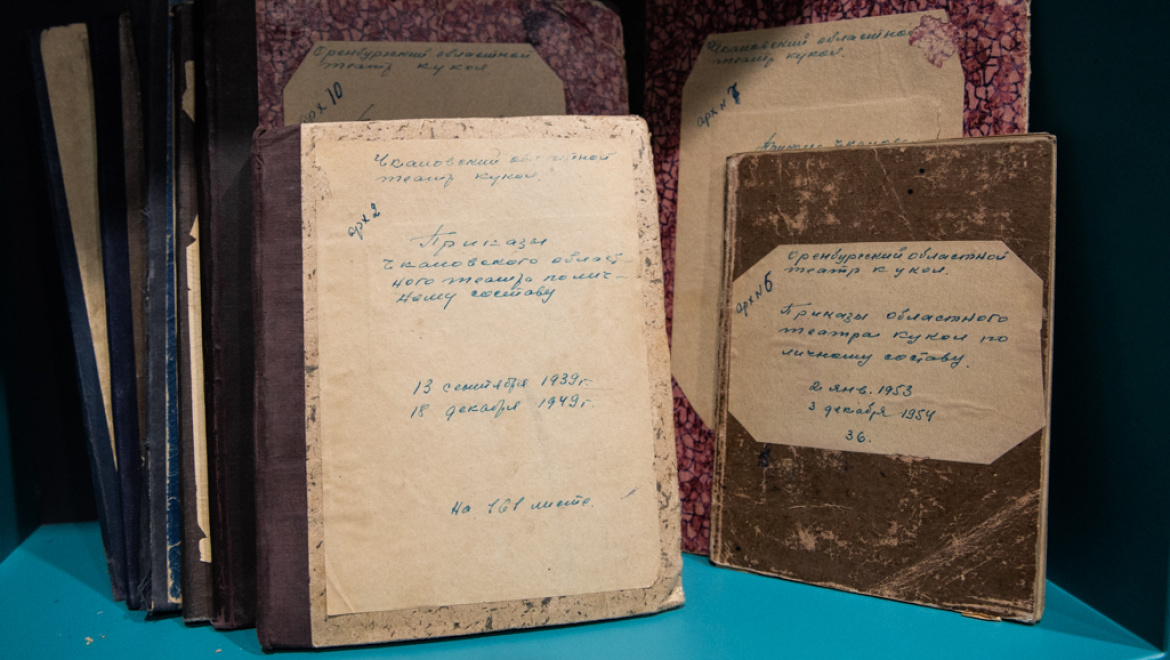 Оренбургский областной
театр кукол
арх 10
Чкаловский областной
театр кукол.
арх № 7
Чкаловский областной
театр кукол.
арх 2
Приказы
Чкаловского област
ного театра по лич-
ному составу
13 сентября 1939 г.
18 декабря 1949 г.
На 161 листе.
Оренбургский областной
театр кукол.
арх № 6
Приказы областного
театра кукол по
личному составу.
2 янв. 1953
3 декабря 1954
36.